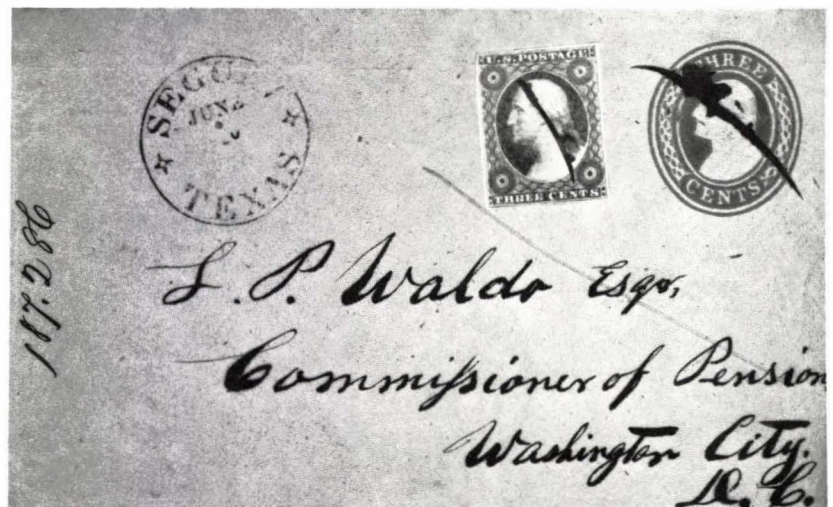 SEGUIN
JUNE
TEXAS
U.S. POSTAGE
THREE CENTS
THREE
CENTS
L. P. Waldo Esqr,
Commissioner of Pension
Washington City.
D. C.